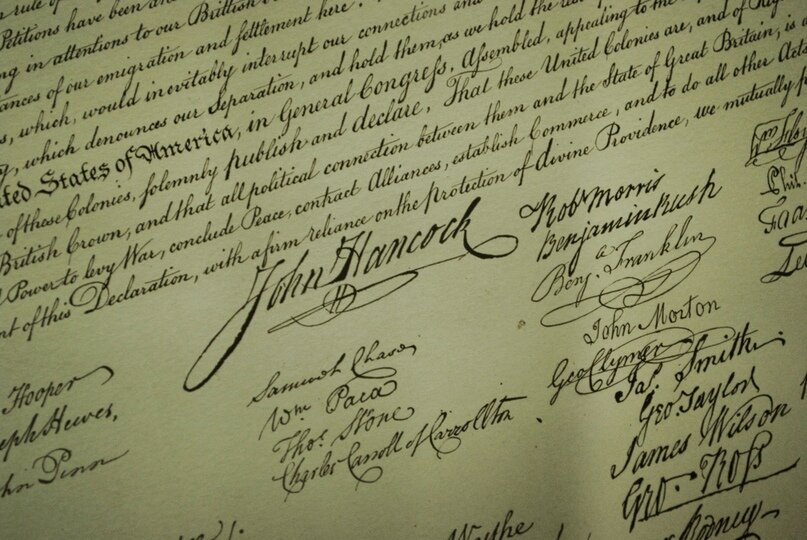 Petitions have been
in attentions to our Brittish
ances of our emigration and settlement here.
which, would inevitably interrupt our connections and
which denounces our Separation, and hold them, as we hold the
States of America, in General Congress, Assembled, appealing to the
of these Colonies, solemnly publish and declare, That these United Colonies are, and of
British Crown, and that all political connection between them and the State of Great Britain, is
Power to levy War, conclude Peace, contract Alliances, establish Commerce, and to do all other Acts
of this Declaration, with a firm reliance on the protection of divine Providence, we mutually
John Hancock
Hooper
Hewes,
Penn
Samuel Chase
Wm. Paca
Thos. Stone
Charles Carroll of Carrollton
Wythe
Robt Morris
Benjamin Rush
Benja. Franklin
John Morton
Geo Clymer
Jas. Smith.
Geo. Taylor
James Wilson
Geo. Ross
Rodney